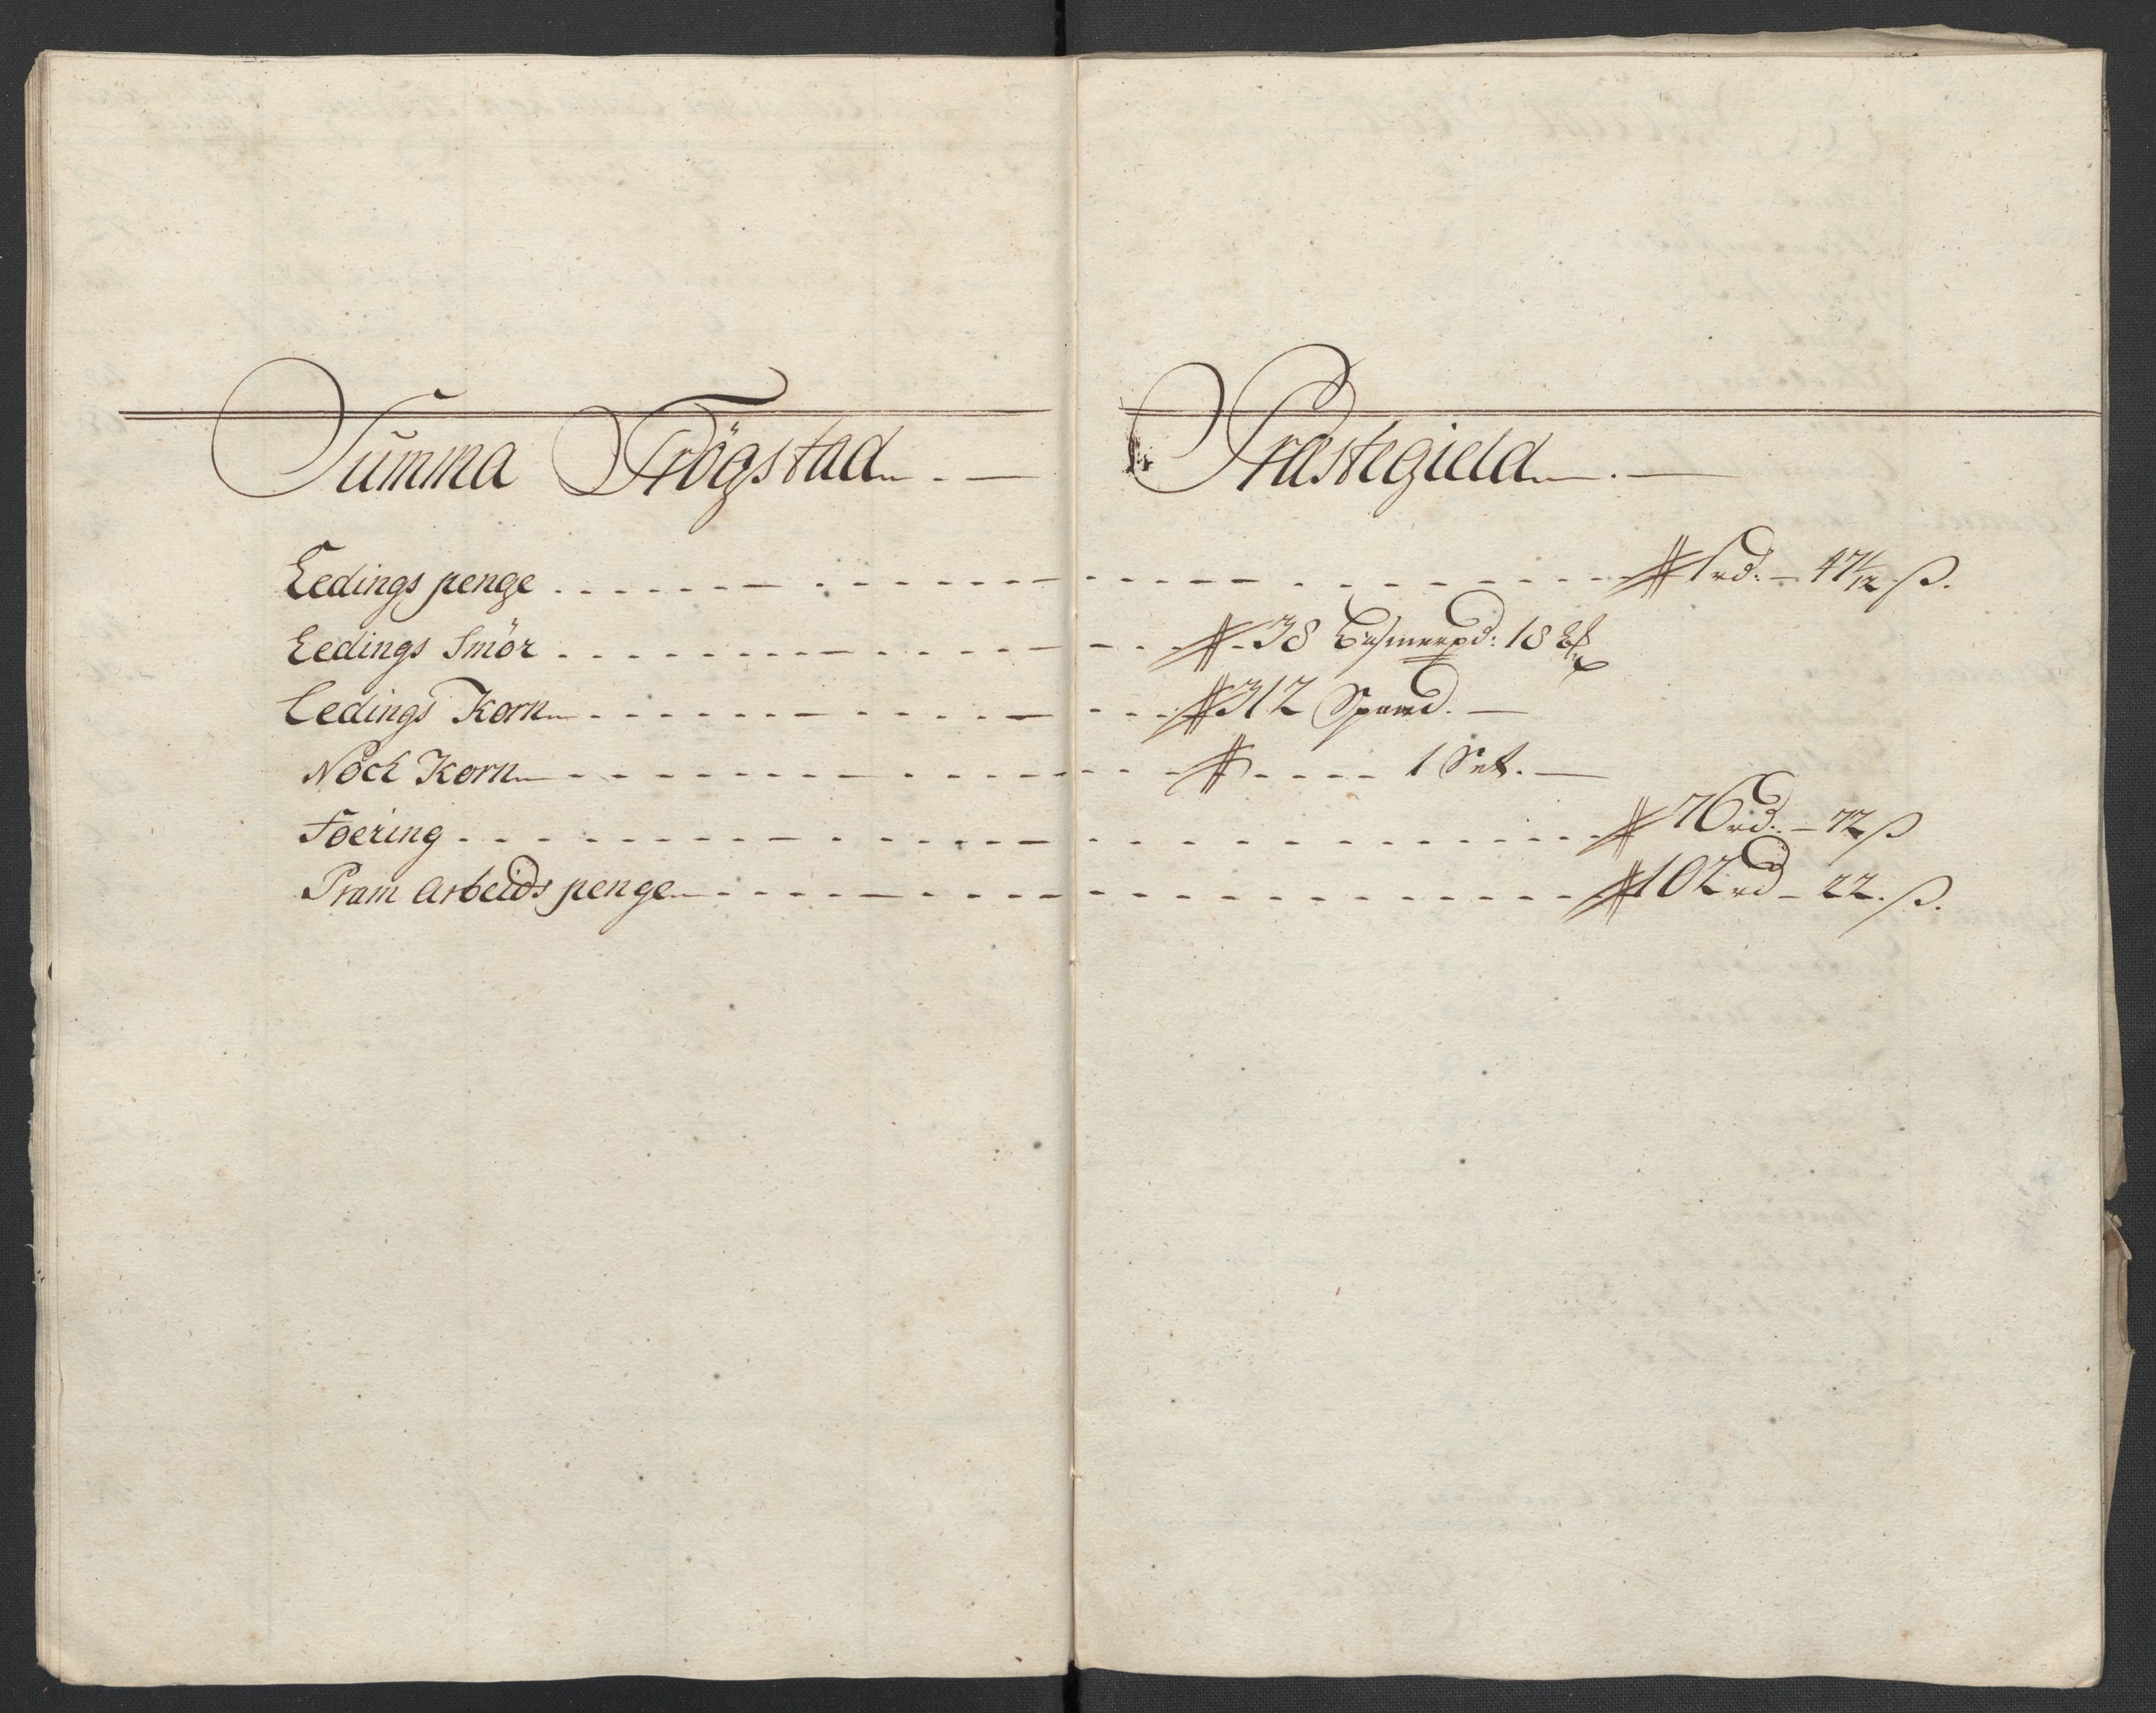 Summa Trögstad Præstegield
Ledings penge . . . . . . # 1 rd. - 47 1/12 ß.
Ledings Smör . . . . . . # 38 Bismerpd: 18 
Ledings Korn . . . . . . # 312 Spand.
Noch Korn . . . . . . # . . . . 1 Set.
Foering . . . . . . # 76 rd. - 72 ß
Pram Arbeids penge . . . . . . # 102 rd - 22. ß.